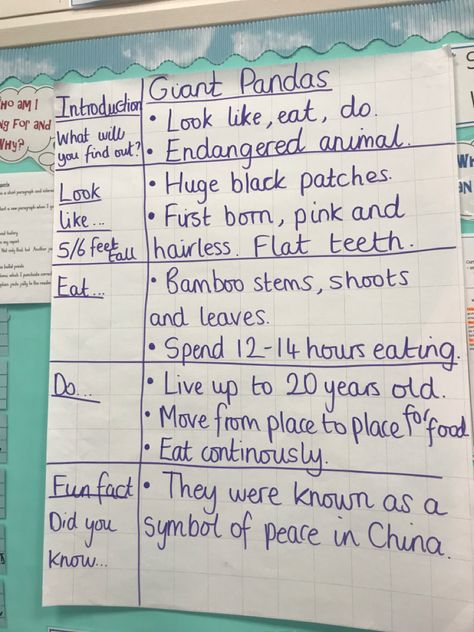 Giant Pandas
Introduction
What will
you find out?
• Look like, eat, do.
• Endangered animal.
Look
like...
5/6 feet
tall
• Huge black patches.
• First born, pink and
hairless. Flat teeth.
Eat...
• Bamboo stems, shoots
and leaves.
• Spend 12-14 hours eating.
Do...
• Live up to 20 years old.
• Move from place to place for food
• Eat continously.
Fun fact
Did you
know...
• They were known as a
symbol of peace in China.
WHO AM I
ng For and
WHY?